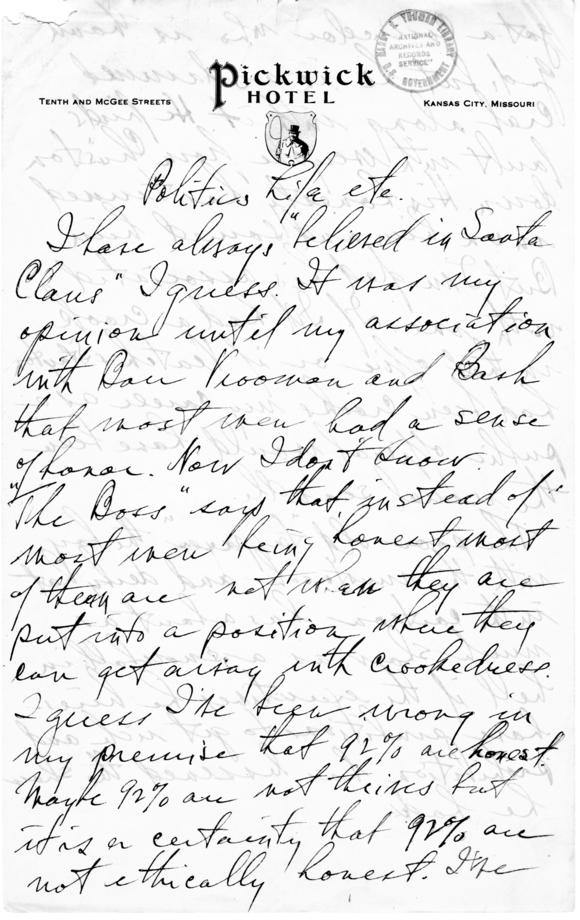 HARRY S. TRUMAN LIBRARY
NATIONAL
ARCHIVES AND
RECORDS
SERVICE
U.S. GOVERNMENT
Pickwick
HOTEL
TENTH AND MCGEE STREETS
KANSAS CITY, MISSOURI
Politics Life etc.
I have always "believed in Santa
Claus" I guess. It was my
opinion until my association
with Barr Vrooman and Bash
that most men had a sense
of honor. Now I don't know.
"The Boss" says that instead of
most men being honest most
of them are not when they are
put into a position where they
can get away with crookedness.
I guess I've been wrong in
my premise that 92% are honest.
Maybe 92% are not thieves but
it is a certainty that 92% are
not ethically honest. I've